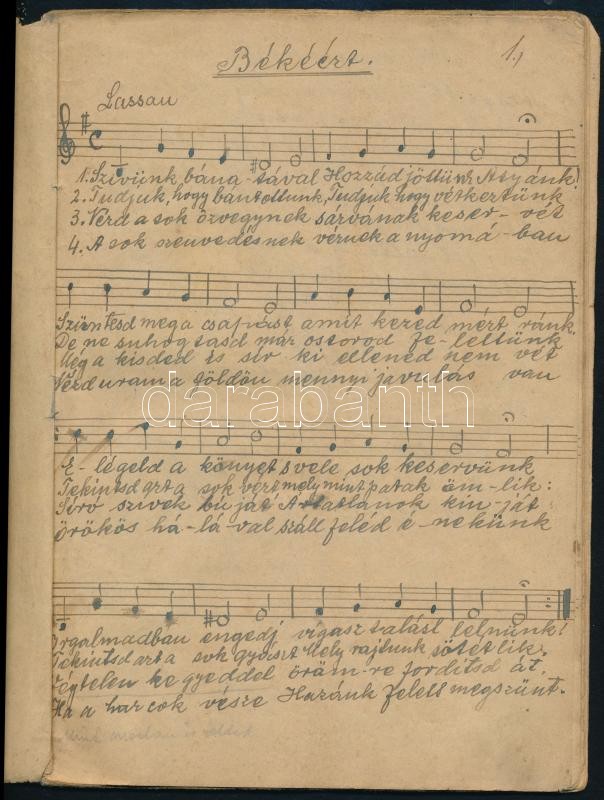 Békéért.
1.,
Lassan
1. Szívünk bána-tával Hozzád jöttünk Atyánk!
2. Tudjuk, hogy bántottunk, Tudjuk hogy vétkeztünk
3. Nézd a sok özvegynek sárvának keser-vét
4. A sok szenvedésnek vérnek a nyomá-ban
Szüntesd meg a csapást amit kezed mért ránk
De ne suhogtasd már ostorod fe-lettünk
Még a kisded is sir ki ellened nem vét
Nézd uram a földön mennyi javulás van
E-légeld a könyet s vele sok keservünk
Tekintsd azt a sok vért mely mint patak öm-lik:
Síró szívek búját Ártatlanok kin-ját
örökös há-lá-val száll feléd é-nekünk
darabanth
Irgalmadban engedj vigasztalást lelnünk!
Tekintsd azt a sok gyászt Mely rajtunk sötétlik.
Végtelen ke gyeddel öröm-re fordítsd át,
Ha a harcok vésze Hazánk felett megszünt.